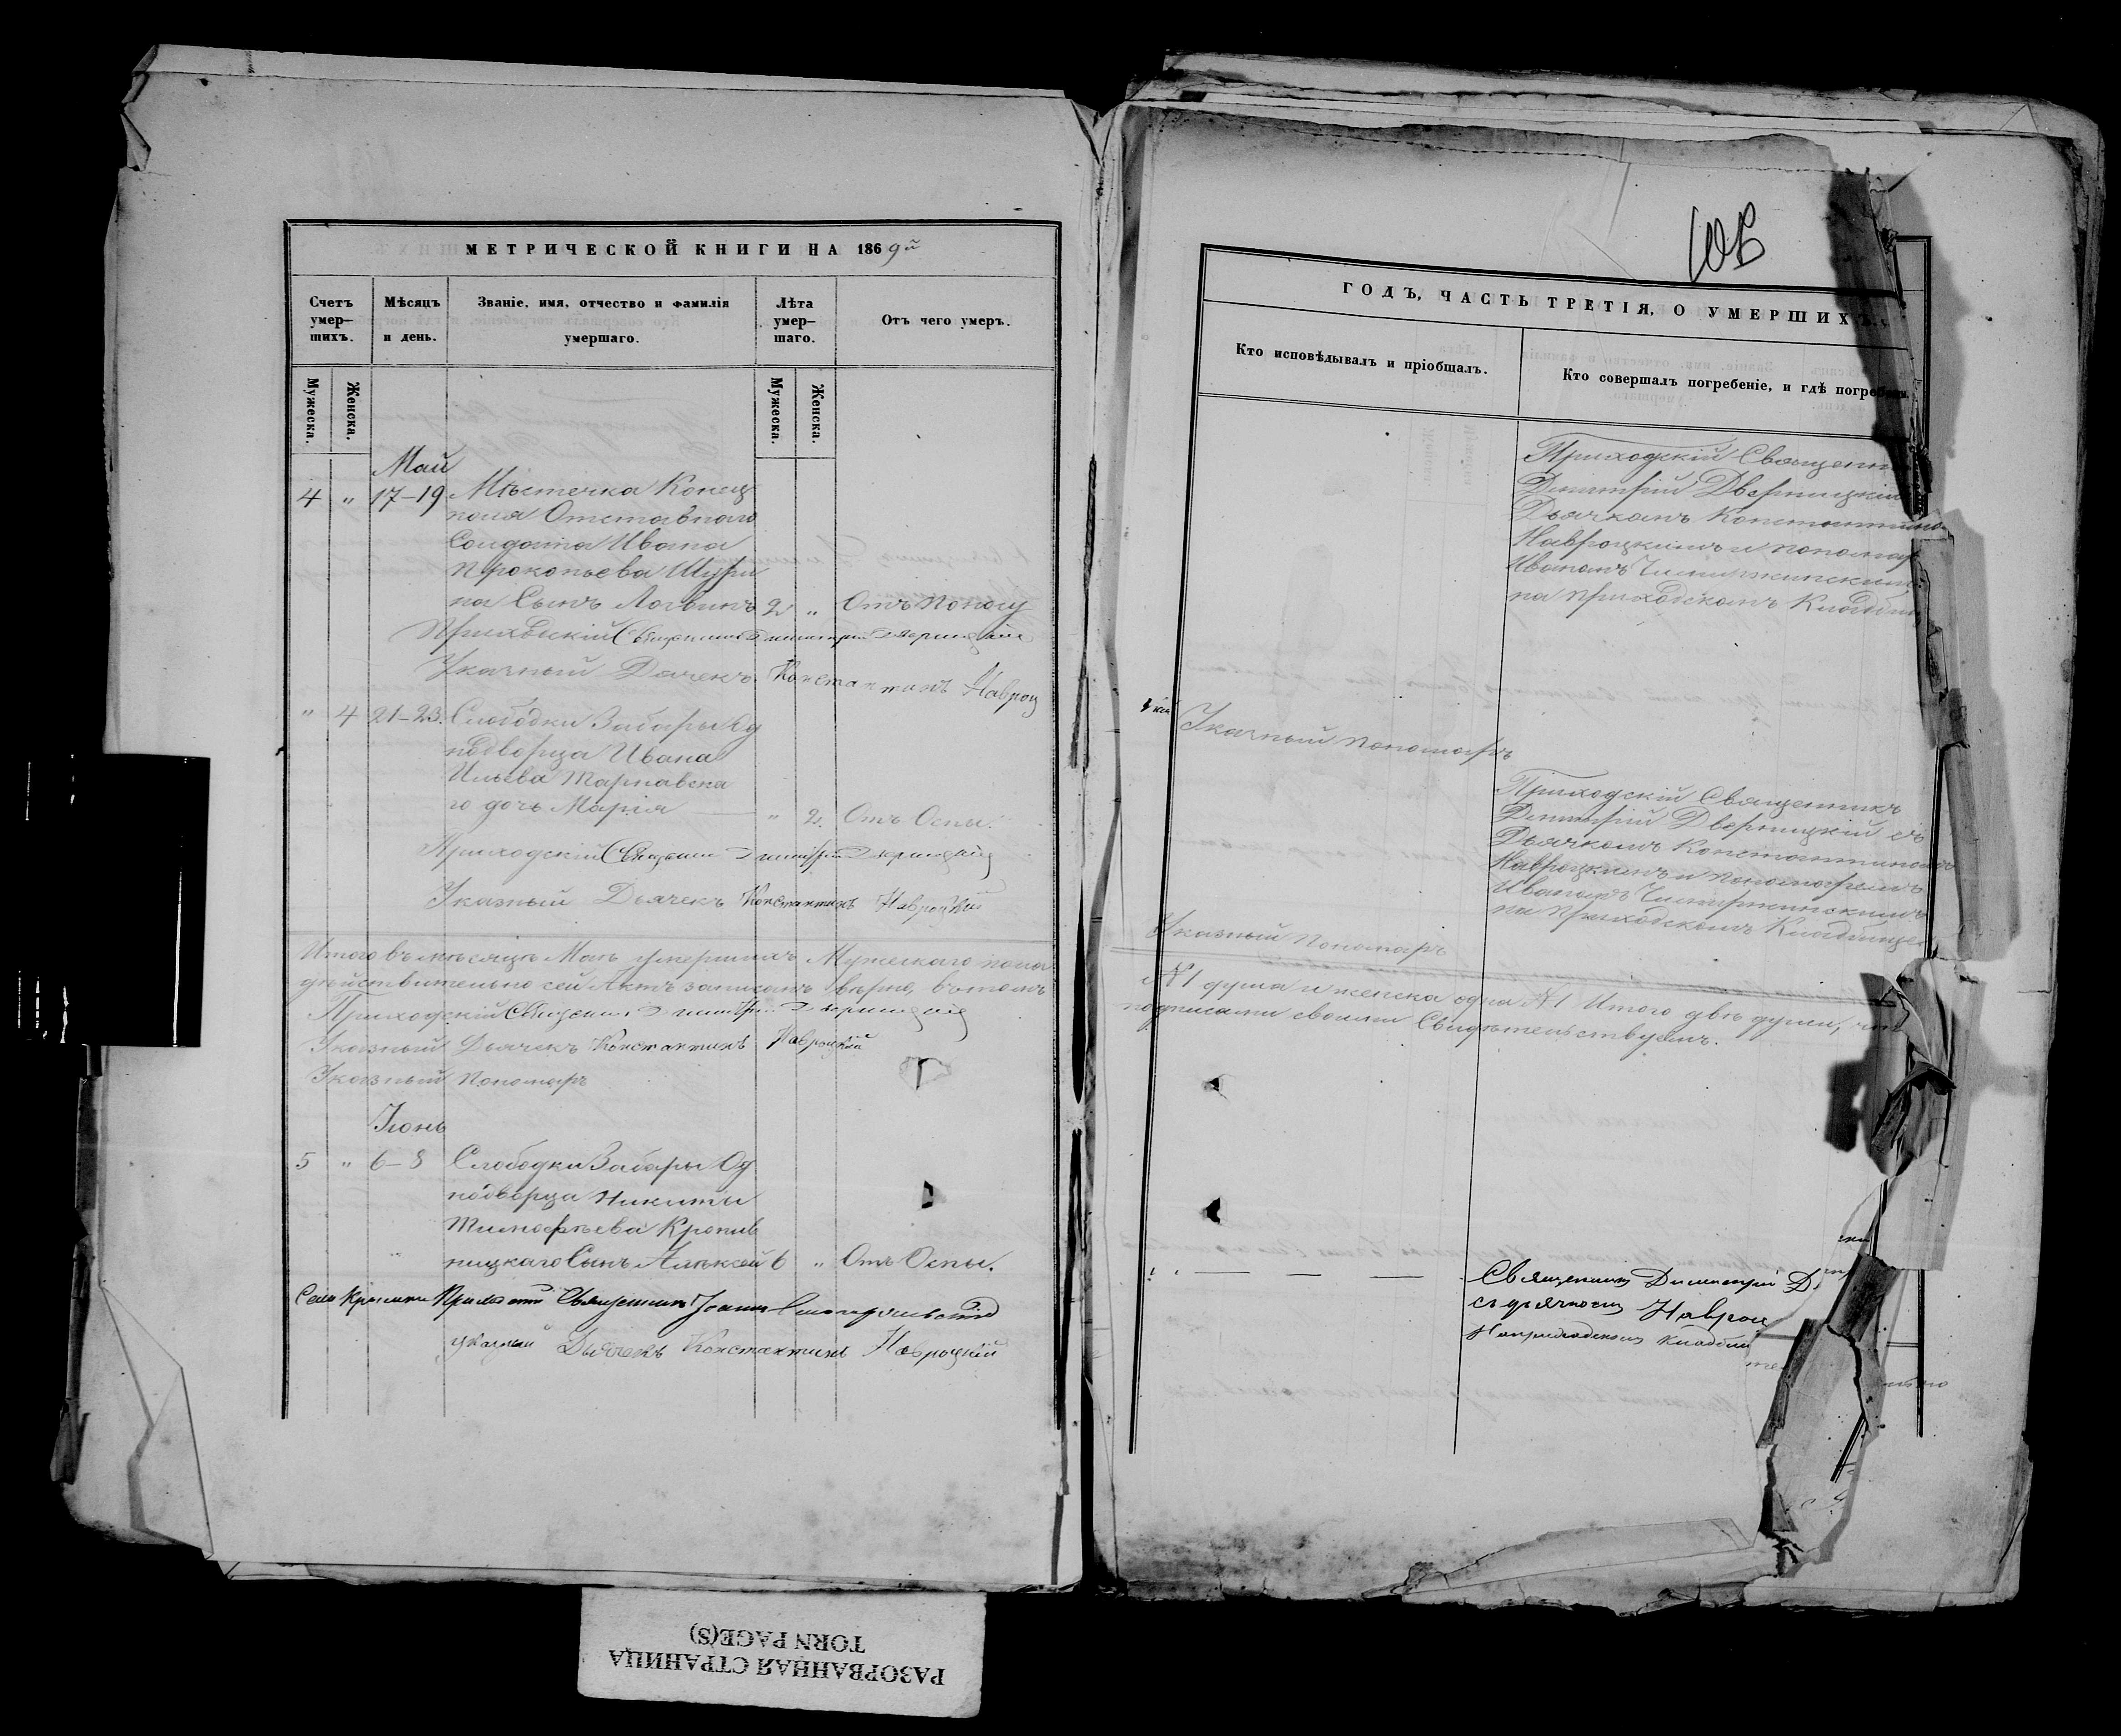 МЕТРИЧЕСКОЙ КНИГИ НА 1869й
Счетъ умер-шихъ.
Мѣсяцъ и день.
Званіе, имя, отчество и фамилія умершаго.
Лѣта умер-шаго.
Отъ чего умеръ.
Мужеска.
Женска.
Мужеска.
Женска.
Май
4 " 17-19 Мѣстечка Конец
поля Отставнаго
Солдата Ивана
Прокопьева Шури
на Сынъ Логвинъ 2 " Отъ поносу
Приходскій Священникъ Димитрій Дверницкій
Указный Дячекъ Константинъ Навроц
" 4 21-23. Слободки Забары Од
нодворца Ивана
Ильева Тарнавска
го дочь Марія " 2. Отъ Оспы.
Приходскій Священни Димитрій Дверницкій
Указный Дьячекъ Константинъ Навроцкій
Итого въ мѣсяцѣ Маѣ умершихъ Мужескаго пола
дѣйствительно сей Актъ записанъ вѣрно, въ томъ
Приходскій Священни Димитрій Дверницкій
Указный Дьячекъ Константинъ Навроцкій
Указный Пономарь
Іюнь
5 " 6-8 Слободки Забары Од
нодворца Никиты
Тимофѣева Кропив
ницкаго Сынъ Алексей 6 " Отъ Оспы.
Села Приходскій Священникъ Іоаннъ
указный Дьячекъ Константинъ Навроцкій
105
ГОДЪ, ЧАСТЬ ТРЕТІЯ, О УМЕРШИХЪ.
Кто исповѣдывалъ и пріобщалъ.
Кто совершалъ погребеніе, и гдѣ погребены
Приходскій Священни
Димитрій Дверницкій
Дьячкомъ Константино
Навроцкимъ и пономар
Иваномъ
на приходскомъ Кладбищ
Указный пономарь
Приходскій Священникъ
Димитрій Дверницкій съ
Дьячкомъ Константиномъ
Навроцкимъ и пономаремъ
Иваномъ
на приходскомъ Кладбище
Указный Пономарь
№1 душа и женска одна №1 Итого двѣ души, что
подписами своими Свидѣтельствуемъ.
Священникъ Димитрій Д
съ дьячкомъ Навроц
на приходскомъ кладбищ
РАЗОРВАННАЯ СТРАНИЦА
TORN PAGE(S)